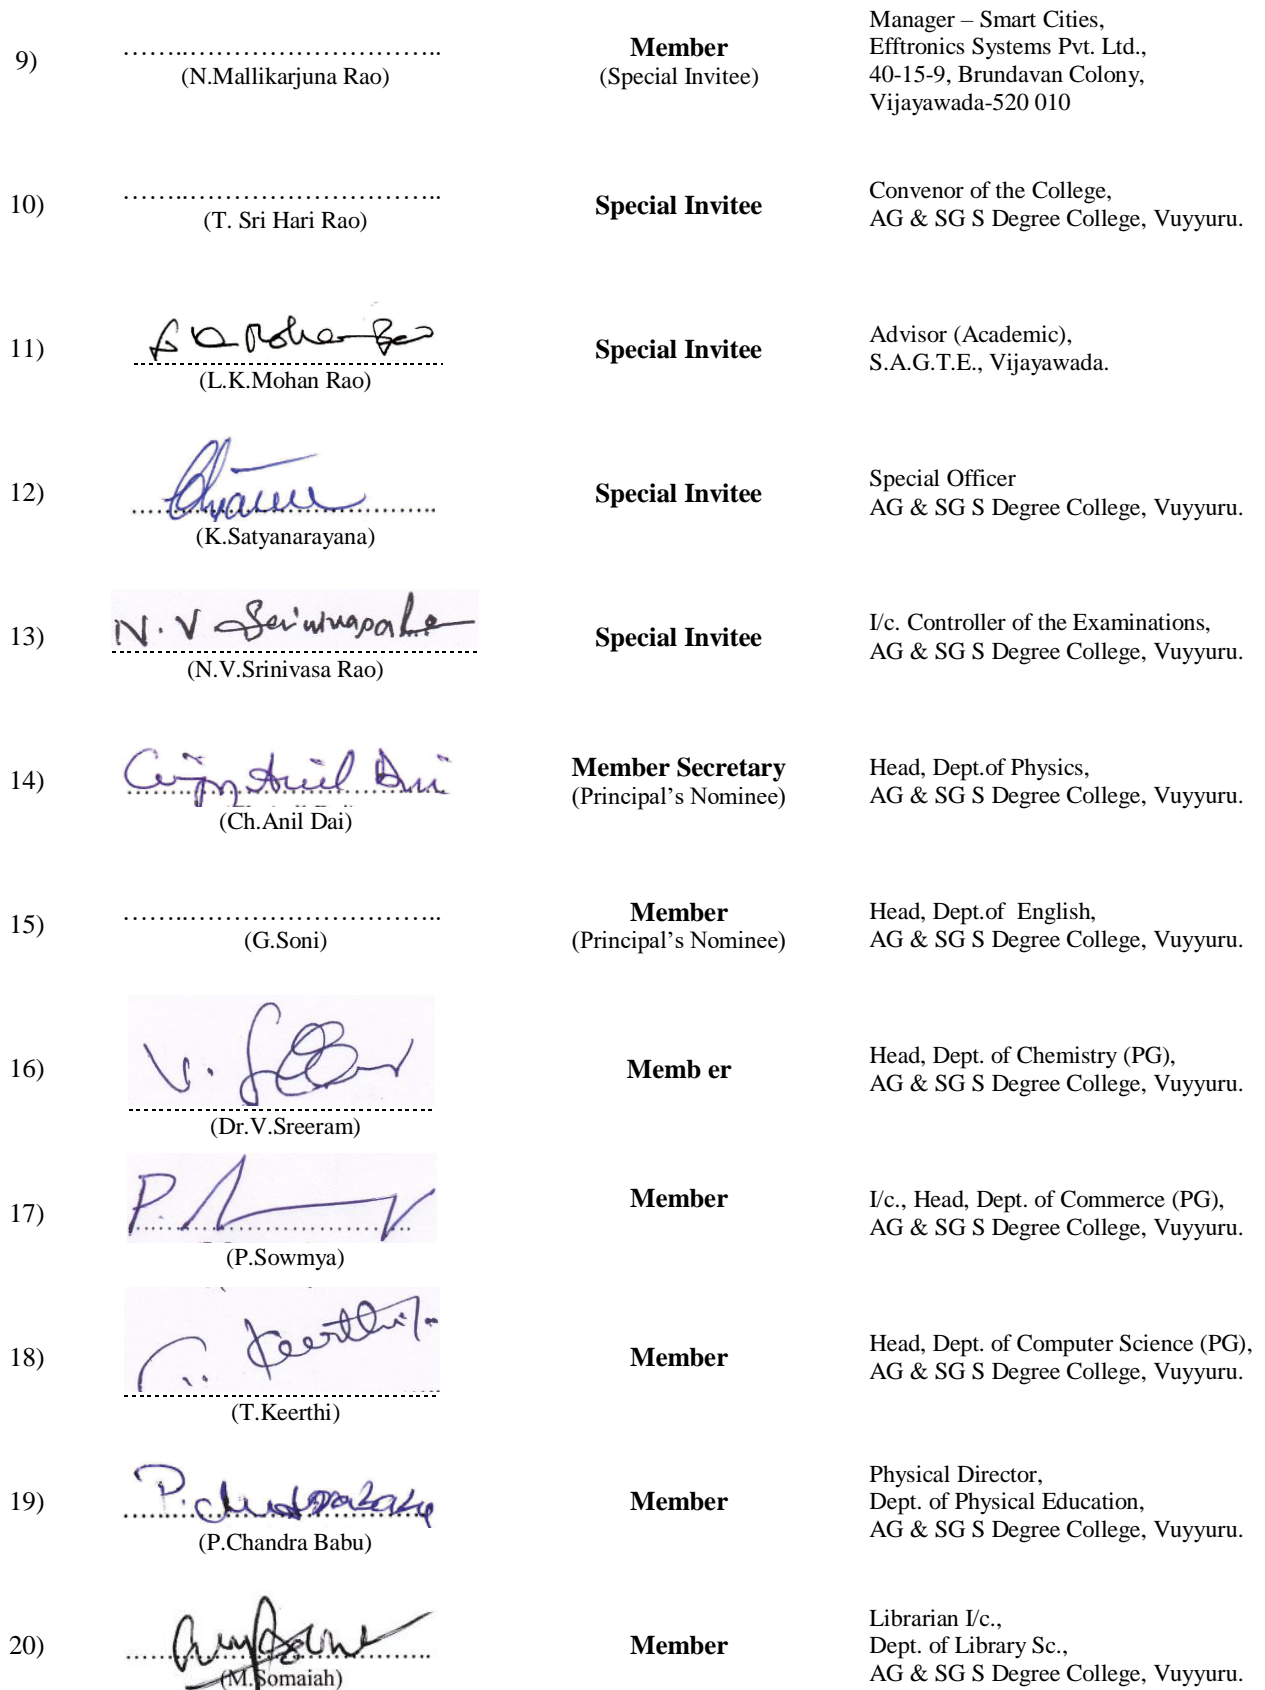 9)
……..………………………..
(N.Mallikarjuna Rao)
Member
(Special Invitee)
Manager – Smart Cities,
Efftronics Systems Pvt. Ltd.,
40-15-9, Brundavan Colony,
Vijayawada-520 010
10)
……..………………………..
(T. Sri Hari Rao)
Special Invitee
Convenor of the College,
AG & SG S Degree College, Vuyyuru.
11)
(L.K.Mohan Rao)
Special Invitee
Advisor (Academic),
S.A.G.T.E., Vijayawada.
12)
(K.Satyanarayana)
Special Invitee
Special Officer
AG & SG S Degree College, Vuyyuru.
13)
N.V Srinivasa Rao
(N.V.Srinivasa Rao)
Special Invitee
I/c. Controller of the Examinations,
AG & SG S Degree College, Vuyyuru.
14)
(Ch.Anil Dai)
Member Secretary
(Principal’s Nominee)
Head, Dept.of Physics,
AG & SG S Degree College, Vuyyuru.
15)
……..………………………..
(G.Soni)
Member
(Principal’s Nominee)
Head, Dept.of  English,
AG & SG S Degree College, Vuyyuru.
16)
(Dr.V.Sreeram)
Memb er
Head, Dept. of Chemistry (PG),
AG & SG S Degree College, Vuyyuru.
17)
(P.Sowmya)
Member
I/c., Head, Dept. of Commerce (PG),
AG & SG S Degree College, Vuyyuru.
18)
T. Keerthi
(T.Keerthi)
Member
Head, Dept. of Computer Science (PG),
AG & SG S Degree College, Vuyyuru.
19)
P. Chandra Babu
(P.Chandra Babu)
Member
Physical Director,
Dept. of Physical Education,
AG & SG S Degree College, Vuyyuru.
20)
(M.Somaiah)
Member
Librarian I/c.,
Dept. of Library Sc.,
AG & SG S Degree College, Vuyyuru.